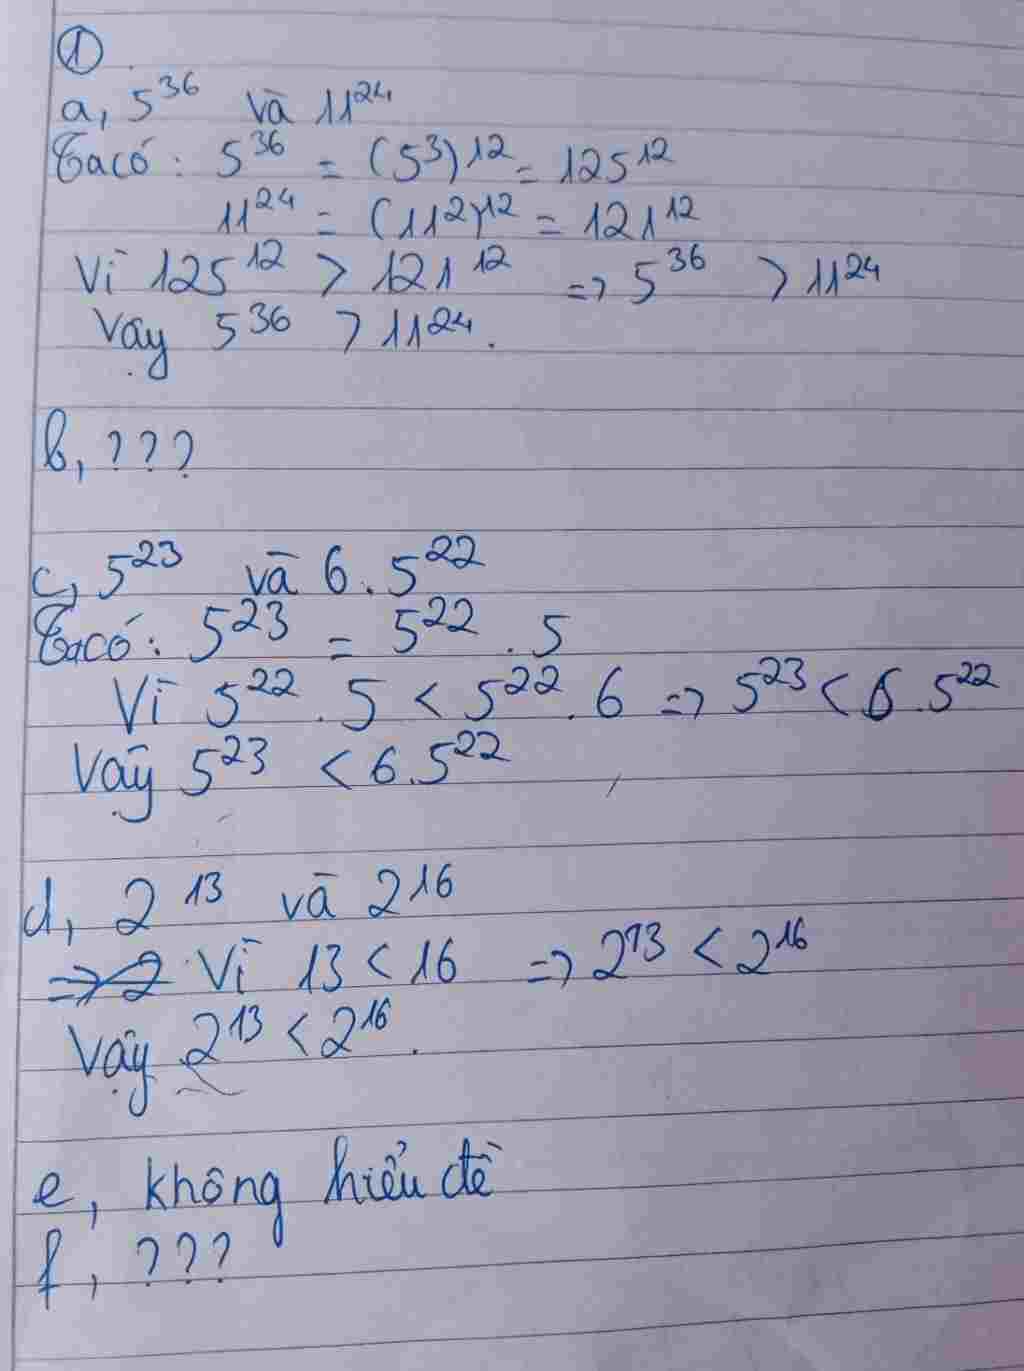 ①
a, 5³⁶ và 11²⁴
Ta có: 5³⁶ = (5³)¹² = 125¹²
11²⁴ = (11²)¹² = 121¹²
Vì 125¹² > 121¹² => 5³⁶ > 11²⁴
Vậy 5³⁶ > 11²⁴.
b, ???
c, 5²³ và 6.5²²
Ta có: 5²³ = 5²².5
Vì 5²².5 < 5²².6 => 5²³ < 6.5²²
Vậy 5²³ < 6.5²²
d, 2¹³ và 2¹⁶
Vì 13 < 16 => 2¹³ < 2¹⁶
Vậy 2¹³ < 2¹⁶.
e, không hiểu đề
f, ???